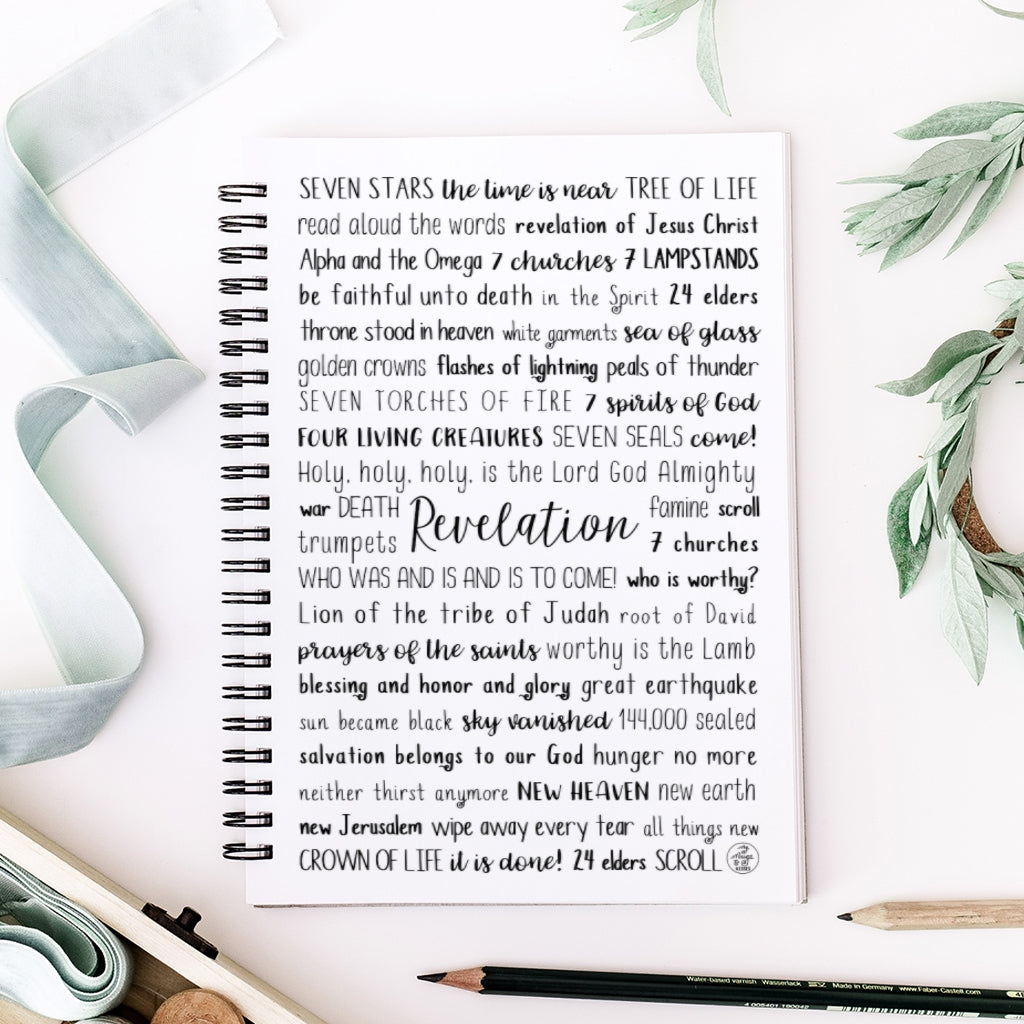 SEVEN STARS the time is near TREE OF LIFE
read aloud the words revelation of Jesus Christ
Alpha and the Omega 7 churches 7 LAMPSTANDS
be faithful unto death in the Spirit 24 elders
throne stood in heaven white garments sea of glass
golden crowns flashes of lightning peals of thunder
SEVEN TORCHES OF FIRE 7 spirits of God
FOUR LIVING CREATURES SEVEN SEALS come!
Holy, holy, holy, is the Lord God Almighty
war DEATH
trumpets
Revelation
famine scroll
7 churches
WHO WAS AND IS AND IS TO COME! who is worthy?
Lion of the tribe of Judah root of David
prayers of the saints worthy is the Lamb
blessing and honor and glory great earthquake
sun became black sky vanished 144,000 sealed
salvation belongs to our God hunger no more
neither thirst anymore NEW HEAVEN new earth
new Jerusalem wipe away every tear all things new
CROWN OF LIFE it is done! 24 elders SCROLL
Water-based varnish Wasserlack Made in Germany www.Faber-Castell.com